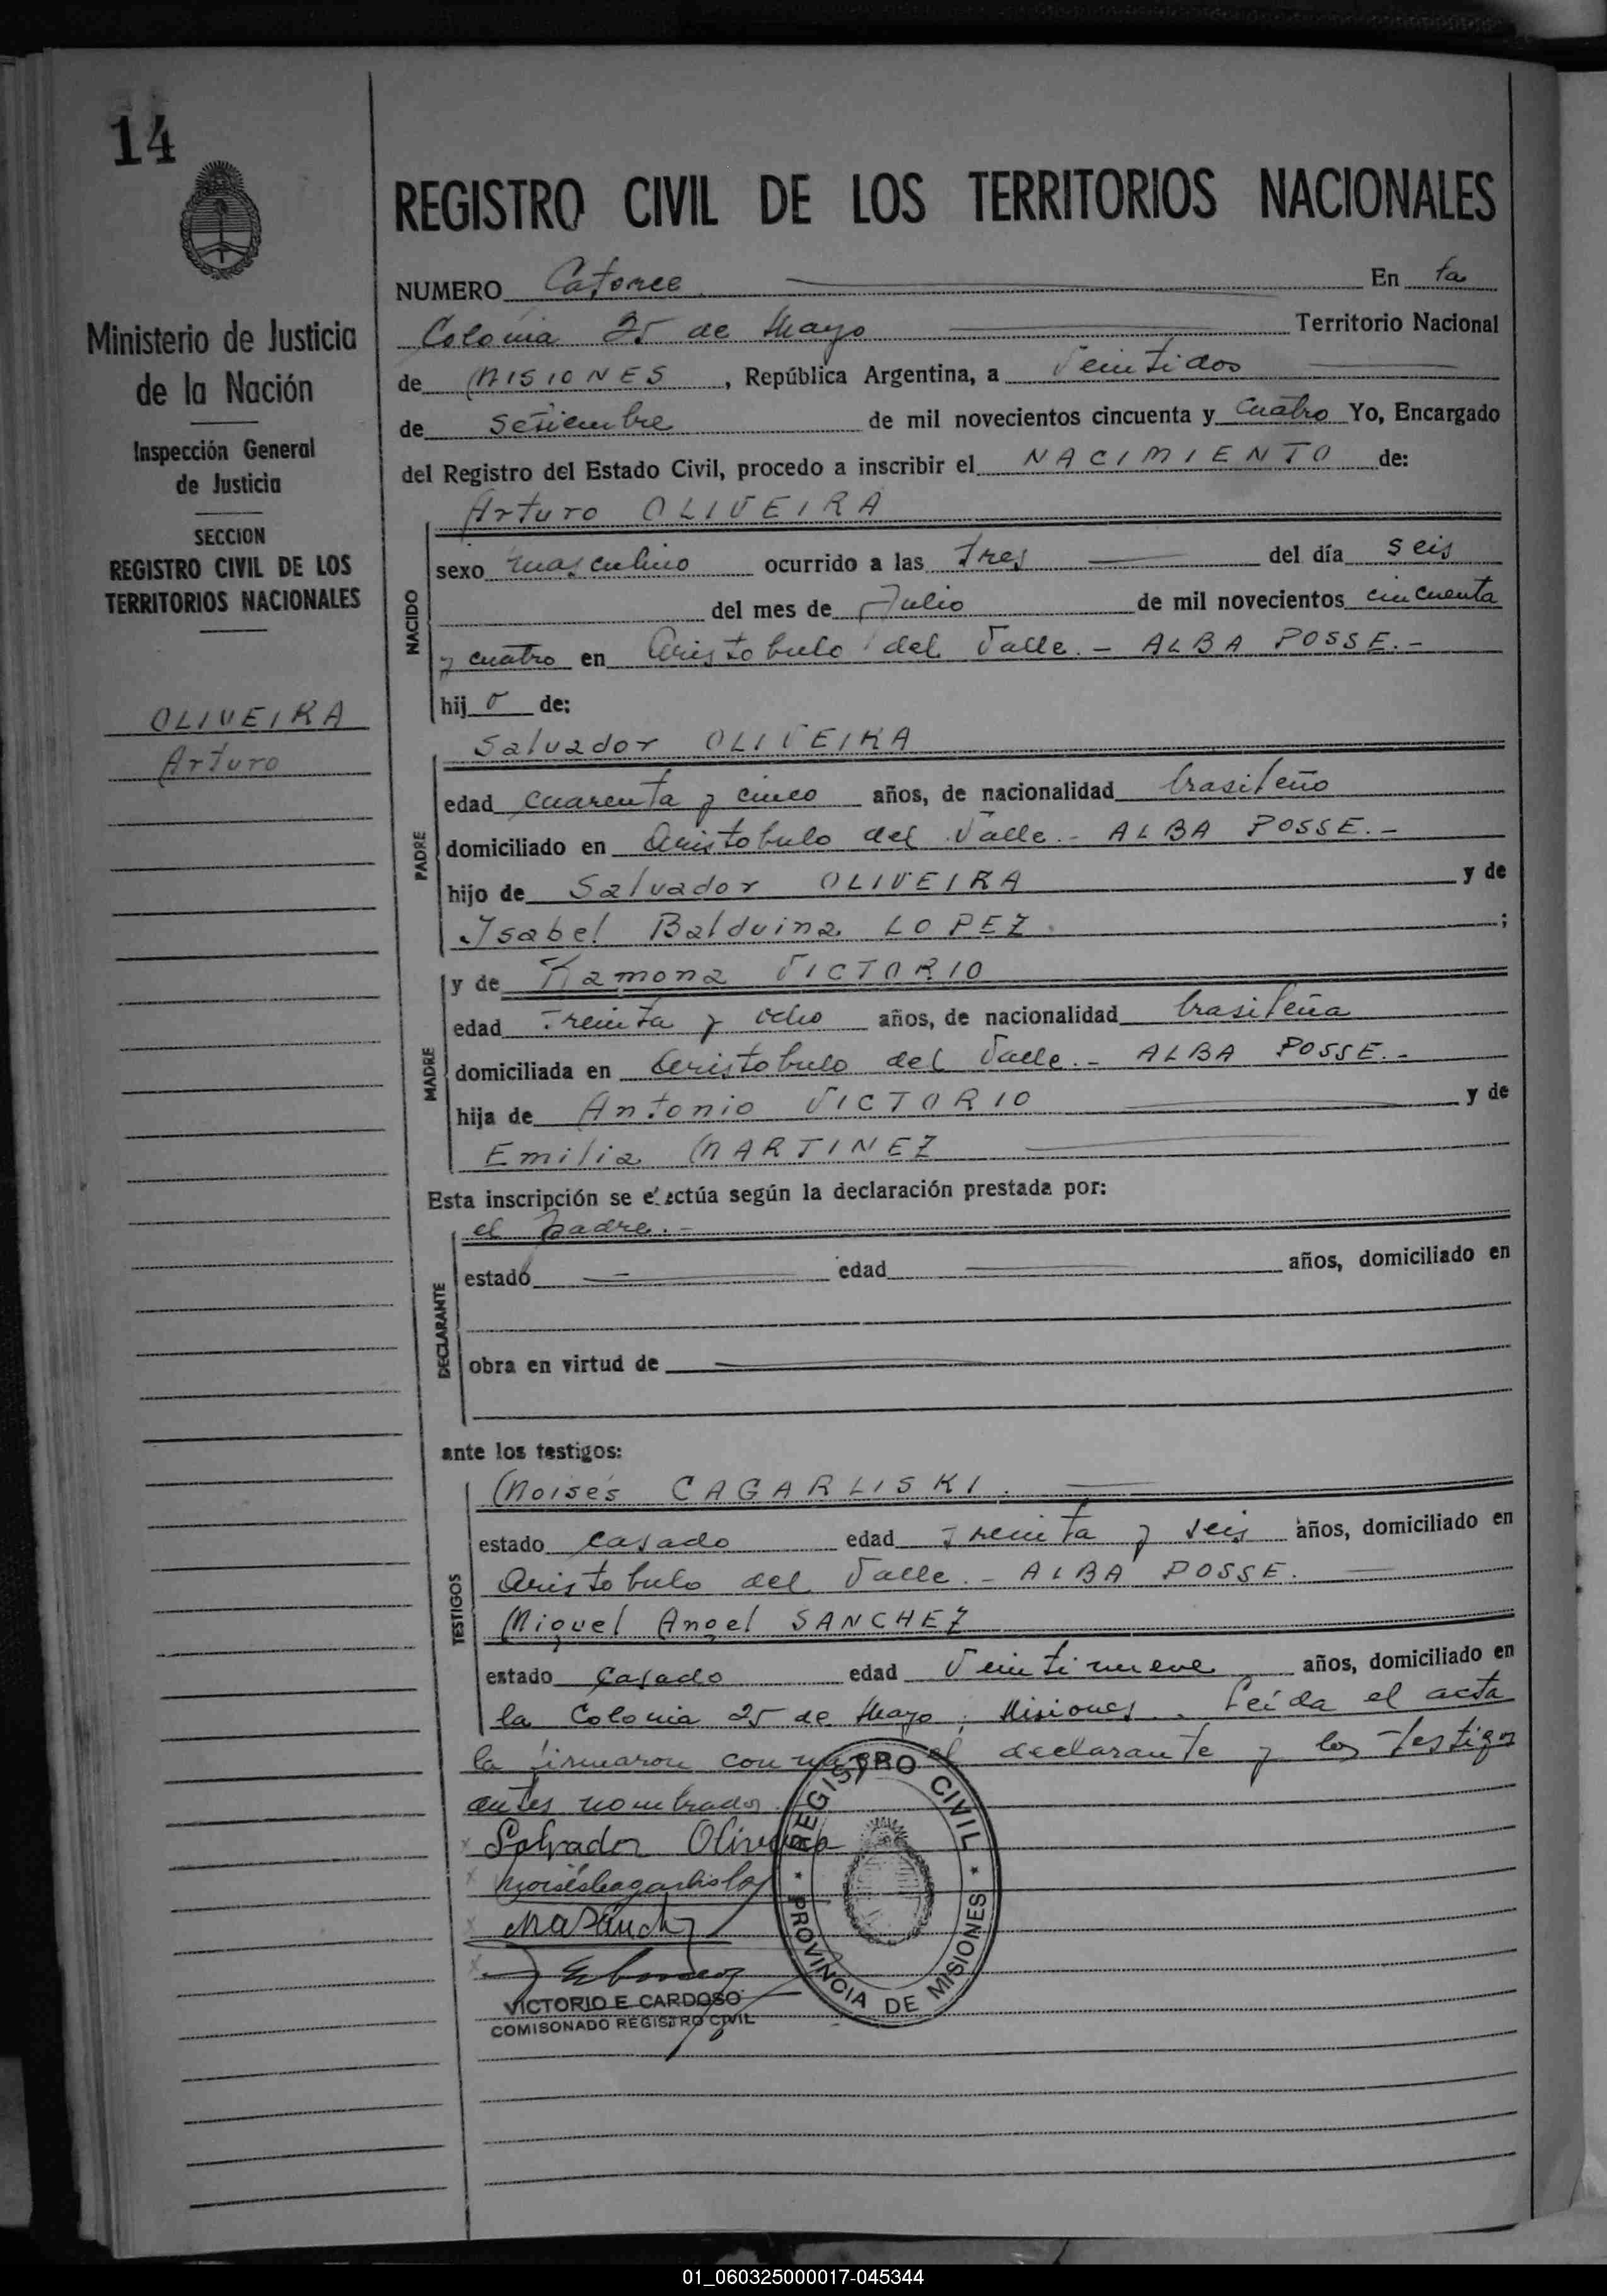 14
Ministerio de Justicia
de la Nación
Inspección General
de Justicia
SECCION
REGISTRO CIVIL DE LOS
TERRITORIOS NACIONALES
OLIVEIRA
Arturo
REGISTRO CIVIL DE LOS TERRITORIOS NACIONALES
NUMERO Catorce En la
Colonia 25 de Mayo Territorio Nacional
de MISIONES, República Argentina, a Veintidos
de setiembre de mil novecientos cincuenta y cuatro Yo, Encargado
del Registro del Estado Civil, procedo a inscribir el NACIMIENTO de:
Arturo OLIVEIRA
NACIDO
sexo masculino ocurrido a las tres del día seis
del mes de Julio de mil novecientos cincuenta
y cuatro en Aristobulo del Valle.- ALBA POSSE.-
hij o de:
Salvador OLIVEIRA
PADRE
edad cuarenta y cinco años, de nacionalidad brasileño
domiciliado en Aristobulo del Valle.- ALBA POSSE.-
hijo de Salvador OLIVEIRA y de
Isabel Balduina LOPEZ ;
y de Ramona VICTORIO
MADRE
edad Treinta y ocho años, de nacionalidad brasileña
domiciliada en Aristobulo del Valle.- ALBA POSSE.-
hija de Antonio VICTORIO y de
Emilia MARTINEZ
Esta inscripción se efectúa según la declaración prestada por:
el padre.-
DECLARANTE
estado edad años, domiciliado en
obra en virtud de
ante los testigos:
Moisés CAGARLISKI.
TESTIGOS
estado casado edad Treinta y seis años, domiciliado en
Aristobulo del Valle.- ALBA POSSE.
Miguel Angel SANCHEZ
estado casado edad Veintinueve años, domiciliado en
la Colonia 25 de Mayo, Misiones. Leída el acta
la firmaron conmigo el declarante y los testigos
antes nombrados.
Salvador Oliveira
VICTORIO E. CARDOSO
COMISONADO REGISTRO CIVIL
REGISTRO CIVIL
* PROVINCIA DE MISIONES *
01_060325000017-045344